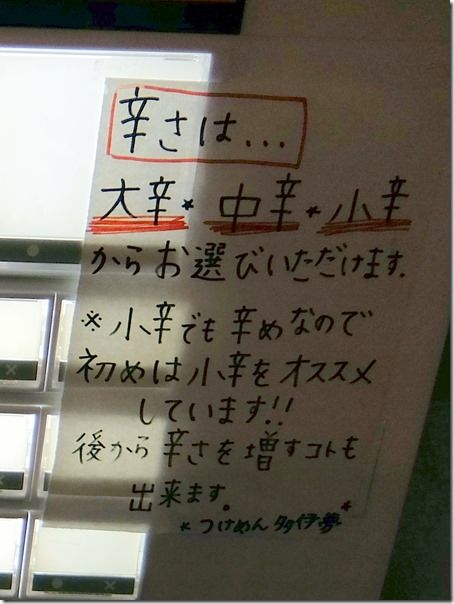 辛さは...
大辛*中辛*小辛
からお選びいただけます.
※小辛でも辛めなので
初めは小辛をオススメ
しています!!
後から辛さを増すコトも
出来ます。
*つけめん 多伊夢*